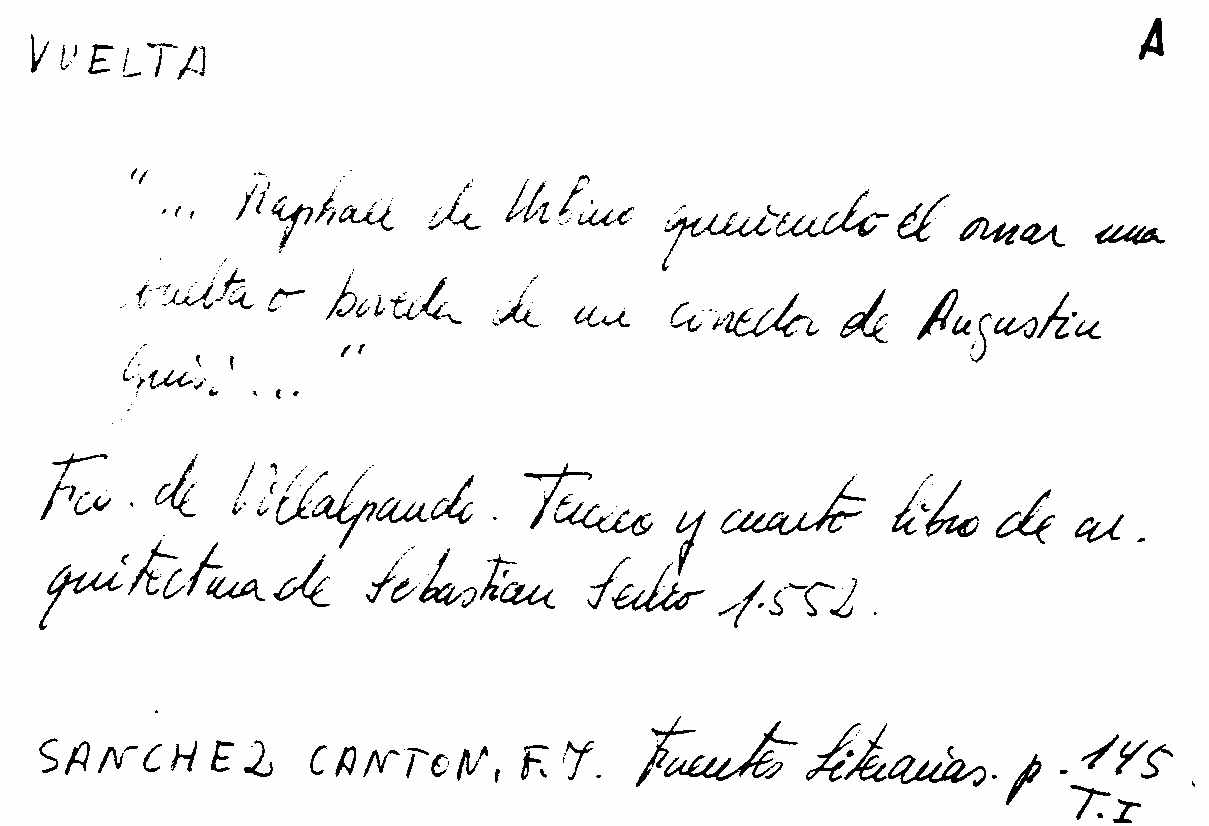 VUELTA A
"... Raphael de Urbino queriendo él ornar una
vuelta o boveda de un corredor de Augustin
Guisi ..."
Fco. de Villalpando. Tercero y cuarto libro de ar-
quitectura de Sebastian Serlio 1.552.
SANCHEZ CANTON, F.J. Fuentes Literarias. p. 145
T.I